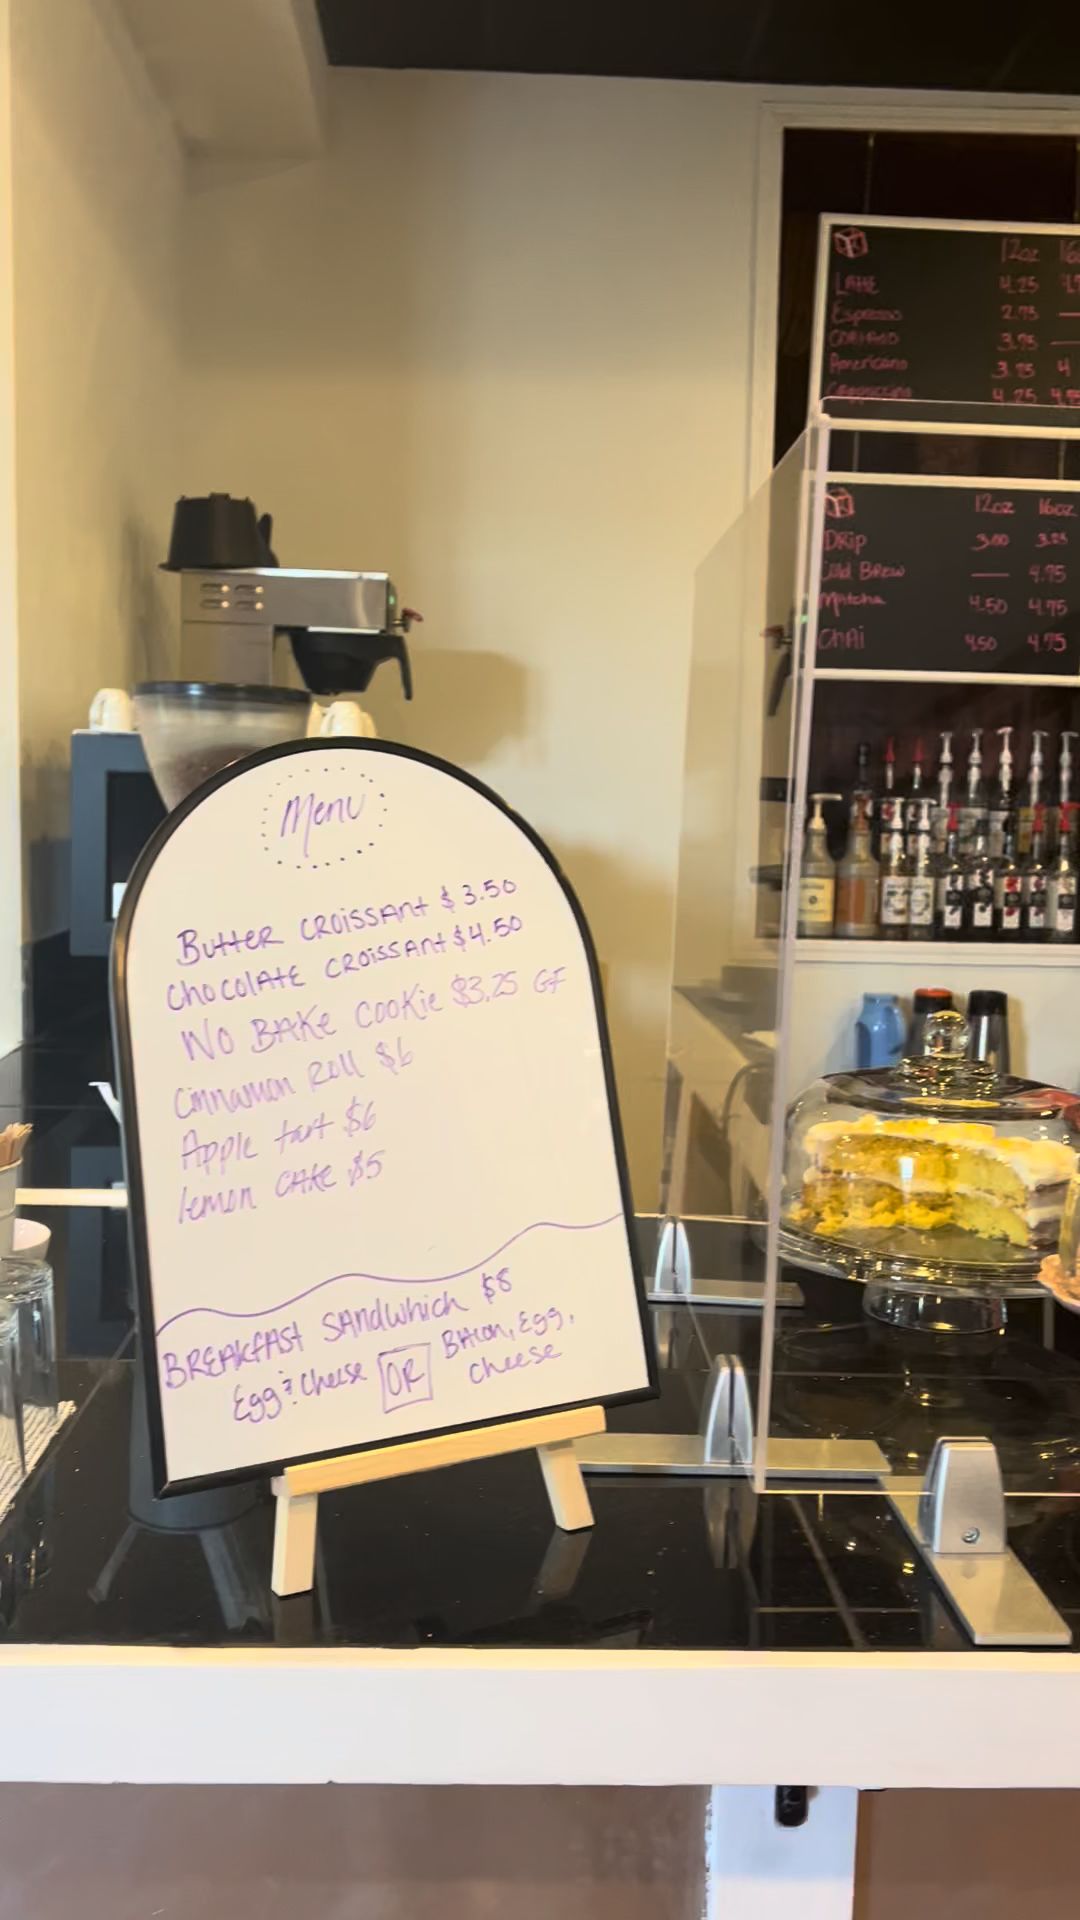 Menu
Butter Croissant $3.50
Chocolate Croissant $4.50
No Bake Cookie $3.25 GF
Cinnamon Roll $6
Apple tart $6
lemon CAKE $5
BREAKfAST SANdwhich $8
Egg & Cheese OR Bacon, Egg, cheese
12oz
LAttE 4.25
Espresso 2.75 —
CORtAdO 3.75 —
Americano 3.75 4
Cappuccino 4.25
12oz 16oz
DRip 3.00 3.25
Cold BREW — 4.75
Matcha 4.50 4.75
CHAi 4.50 4.75